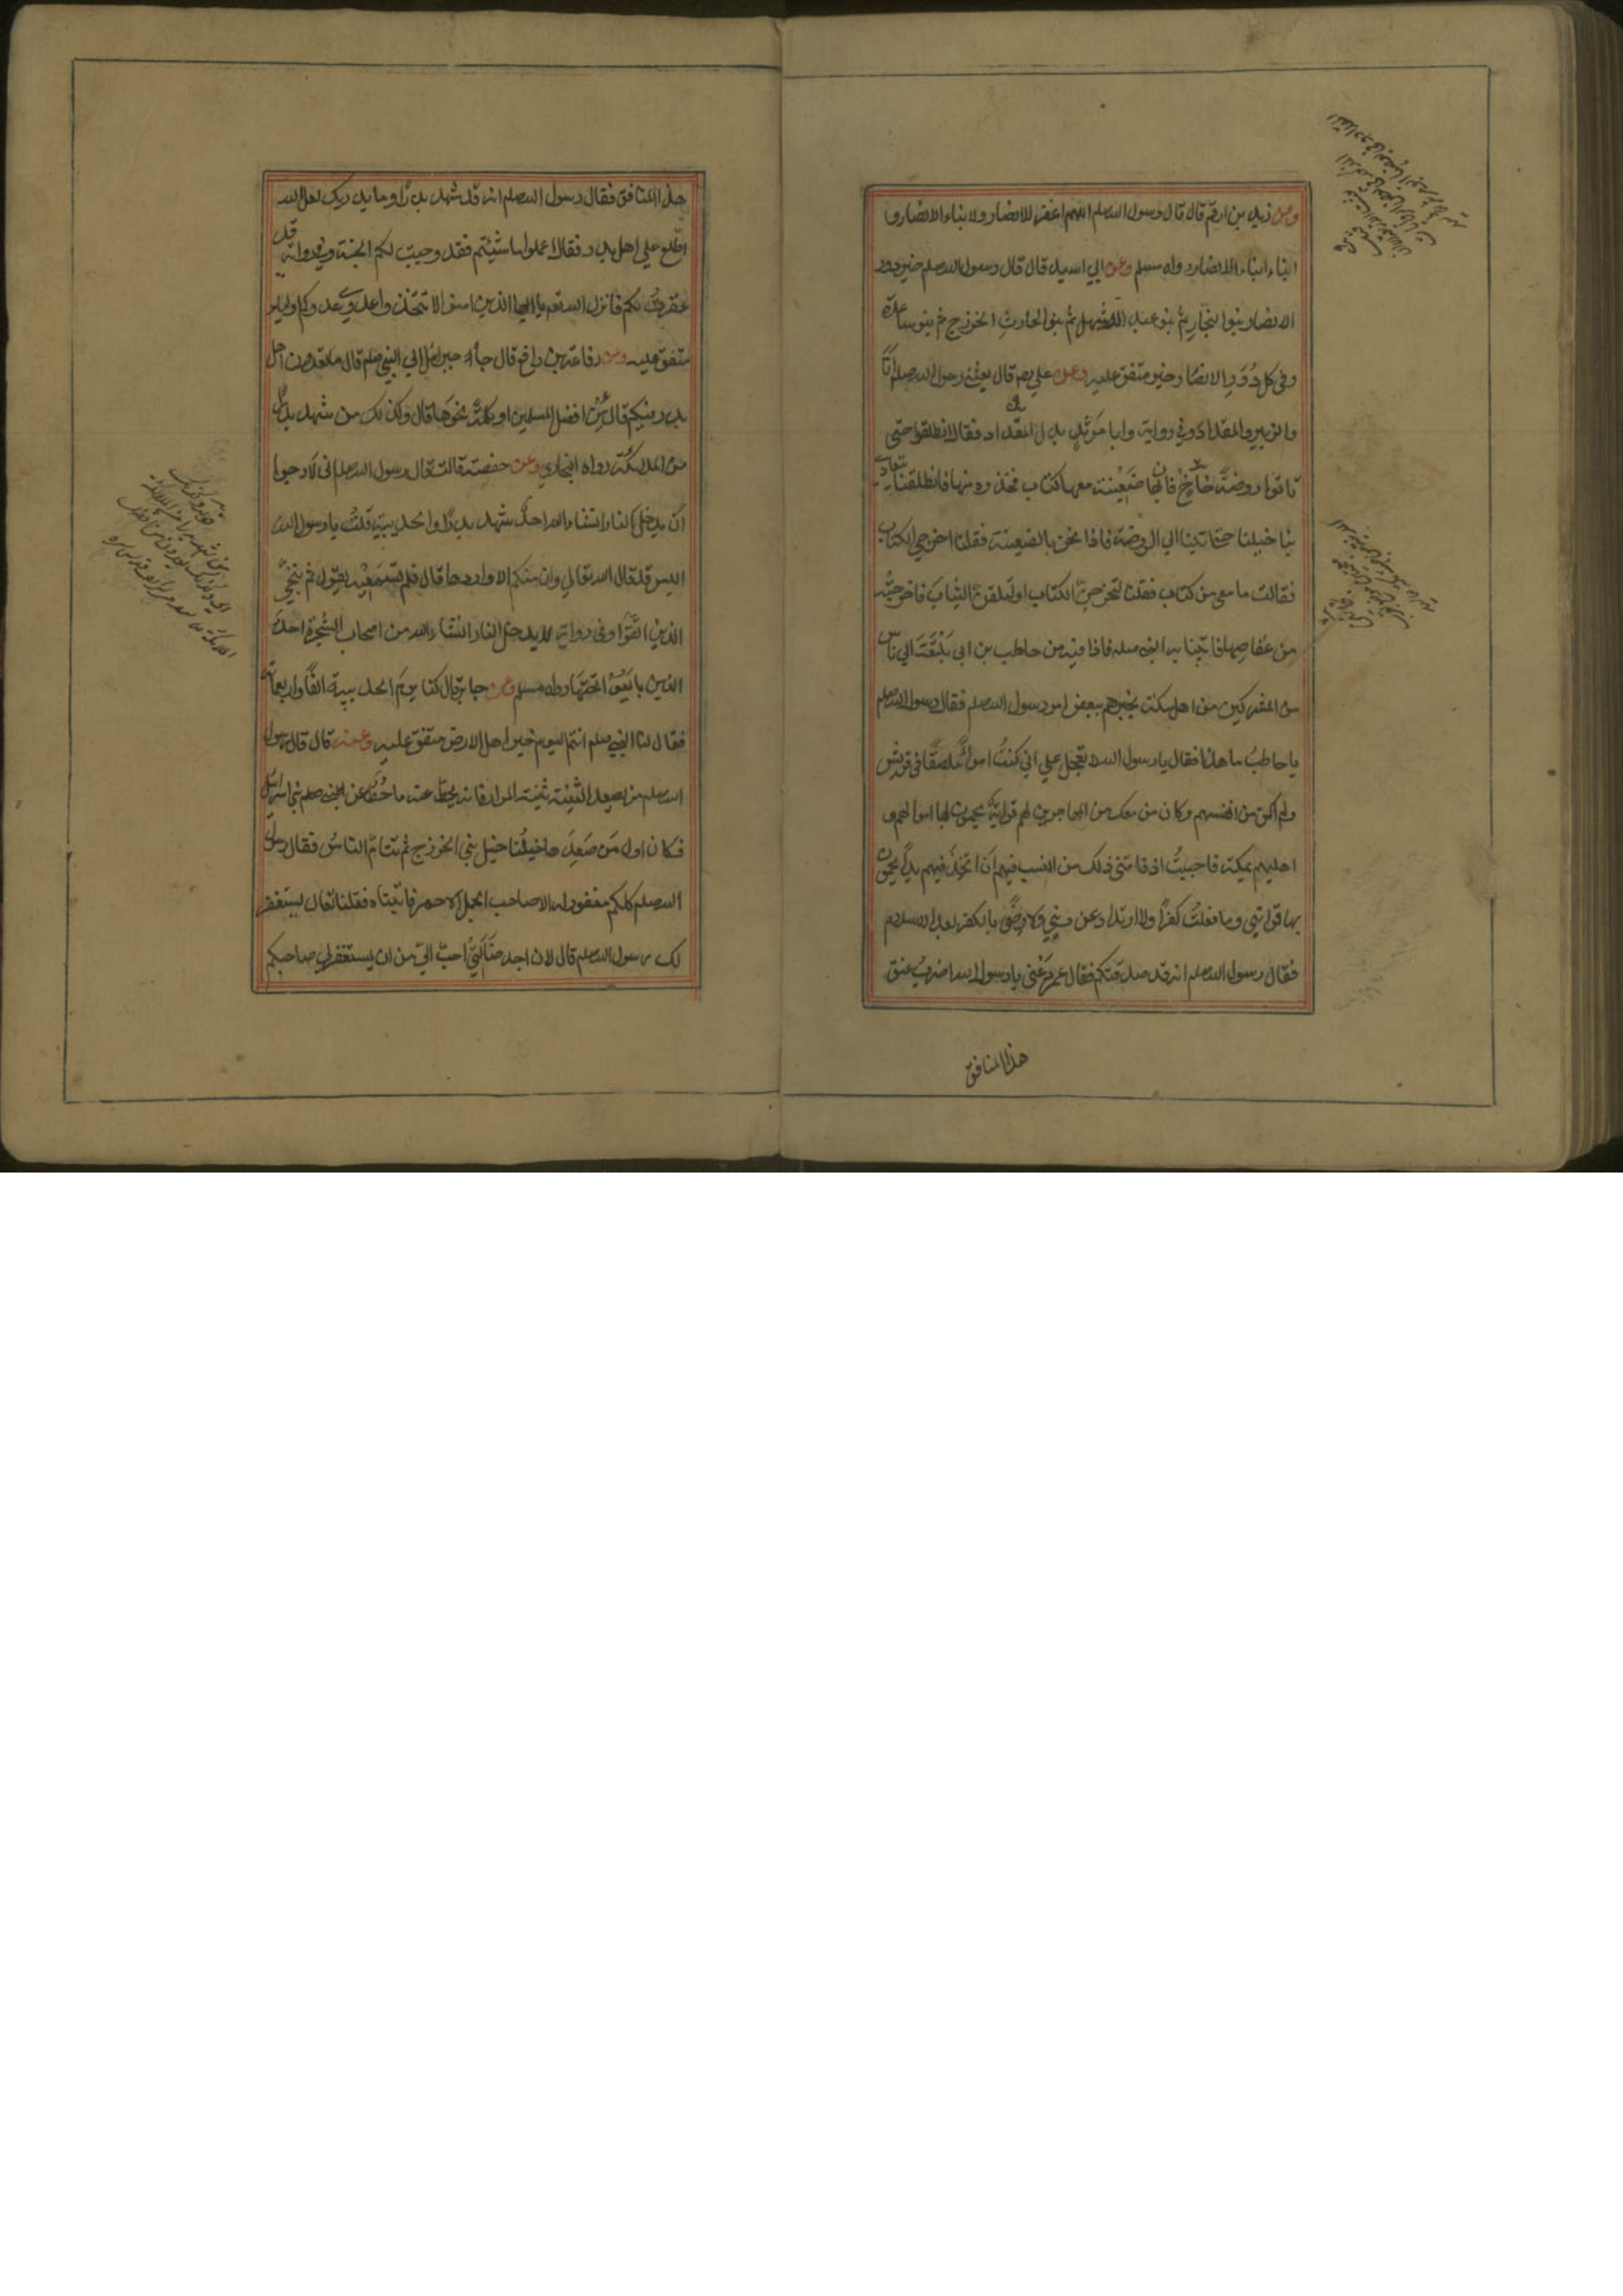 وعن زيد بن ارقم قال قال رسول الله صلم اللهم اغفر للانصار ولابناء الانصار و
ابناء ابناء الانصار رواه مسلم وعن ابي اسيد قال قال رسول الله صلم خير دور
الانصار بنوا النجار ثم بنو عبد الاشهل ثم بنو الحارث الخزرج ثم بنو ساعدة
وفي كل دُوَرِ الانصار خير متفق عليه وعن علي رضه قال بعثني رسول الله صلم انَا
والزبير والمقداد وفي رواية وابا مَرثد بدل المقداد فقال انطلقوا حتى
تاتوا روضة خاخ فان بها ضعينة معها كتاب فخذوه منها فانطلقنا تتعادى
بنا خيلنا حتى اتينا الي الروضة فاذا نحن بالضعينة فقلنا اخرجي الكتاب
فقالت ما معي من كتاب فقلنا لتخرجن الكتاب او لتلقن الثياب فاخرجته
من عقاصها فاتينا به النبي صلم فاذا فيه من حاطب بن ابي بلتعة الي ناس
من المشركين من اهل مكة يخبرهم ببعض امر رسول الله صلم فقال رسول الله صلم
يا حاطب ما هذا فقال يا رسول الله لا تعجل علي اني كنت امراً ملصقًا في قريش
ولم اكن من انفسهم وكان من معك من المهاجرين لهم قرابة يحمون بها اموالهم و
اهليهم بمكة فاحببتُ اذ فاتني ذلك من النسب فيهم ان اتخذ فيهم يدًا يحمون
بها قرابتي وما فعلتُ كفرًا ولا ارتدادا عن ديني ولا رضًى بالكفر بعد الاسلام
فقال رسول الله صلم انه قد صدقكم فقال عمر دعني يا رسول الله اضرب عنق
هذا المنافق
هذا المنافق فقال رسول الله صلم انه قد شهد بدرًا وما يدريك لعل الله
اطّلع علي اهل بدر فقال اعملوا ما شئتم فقد وجبت لكم الجنة وفي رواية قد
غفرت لكم فانزل الله تعم يا ايها الذين امنوا لا تتخذوا عدوي وعدوكم اولياء
متفق عليه وعن رفاعة بن رافع قال جاء جبرائيل الي النبي صلم قال ما تعدون اهل
بدر فيكم قال من افضل المسلمين او كلمة نحوها قال وكذلك من شهد بدرًا
من الملائكة رواه البخاري وعن حفصة قالت قال رسول الله صلم اني لارجوا
ان لا يدخل النار ان شاء الله احد شهد بدرًا والحديبية قلتُ يا رسول الله
اليس قد قال الله تعالي وان منكم الا واردها قال فلم تسمعيه يقول ثم ننجّي
الذين اتقوا وفي رواية لا يدخل النار ان شاء الله من اصحاب الشجرة احد
الذين بايعوا تحتها رواه مسلم وعن جابر قال كنا يوم الحديبية الفًا واربعمائة
فقال لنا النبي صلم انتم اليوم خير اهل الارض متفق عليه وعنه قال قال رسول
الله صلم من يصعد الثنية ثنية المرار فانه يحط عنه ما حُطَّ عن بني اسرائيل
فكان اول من صَعِدَها خيلُنا خيل بني الخزرج ثم تتامّ الناسُ فقال رسول
الله صلم كلكم مغفور له الا صاحب الجمل الاحمر فاتيناه فقلنا تعال يستغفر
لك رسول الله صلم قال لان اجد ضالّتي احبّ اليّ من ان يستغفر لي صاحبكم